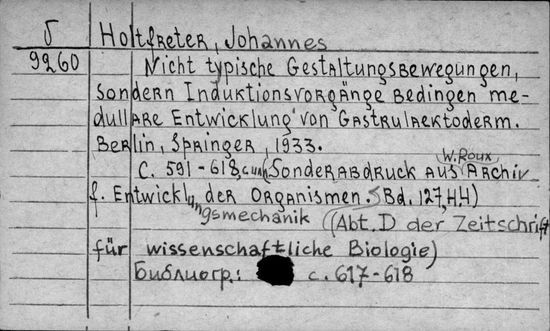 Б Holtfreter, Johannes
9260 Nicht typische Gestaltungsbewegungen,
sondern Induktionsvorgänge bedingen me-
dullare Entwicklung von Gastrulaektoderm.
Berlin, Springer, 1933.
С. 591-618, (Sonderabdruck aus W. Roux Archiv
f. Entwicklungsmechanik der Organismen. Bd. 127, H4)
(Abt. D der Zeitschrift
für wissenschaftliche Biologie)
Библиогр.: с. 617-618